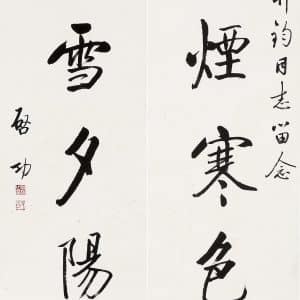 鈞同志留念
煙寒色
雪夕陽
啓功